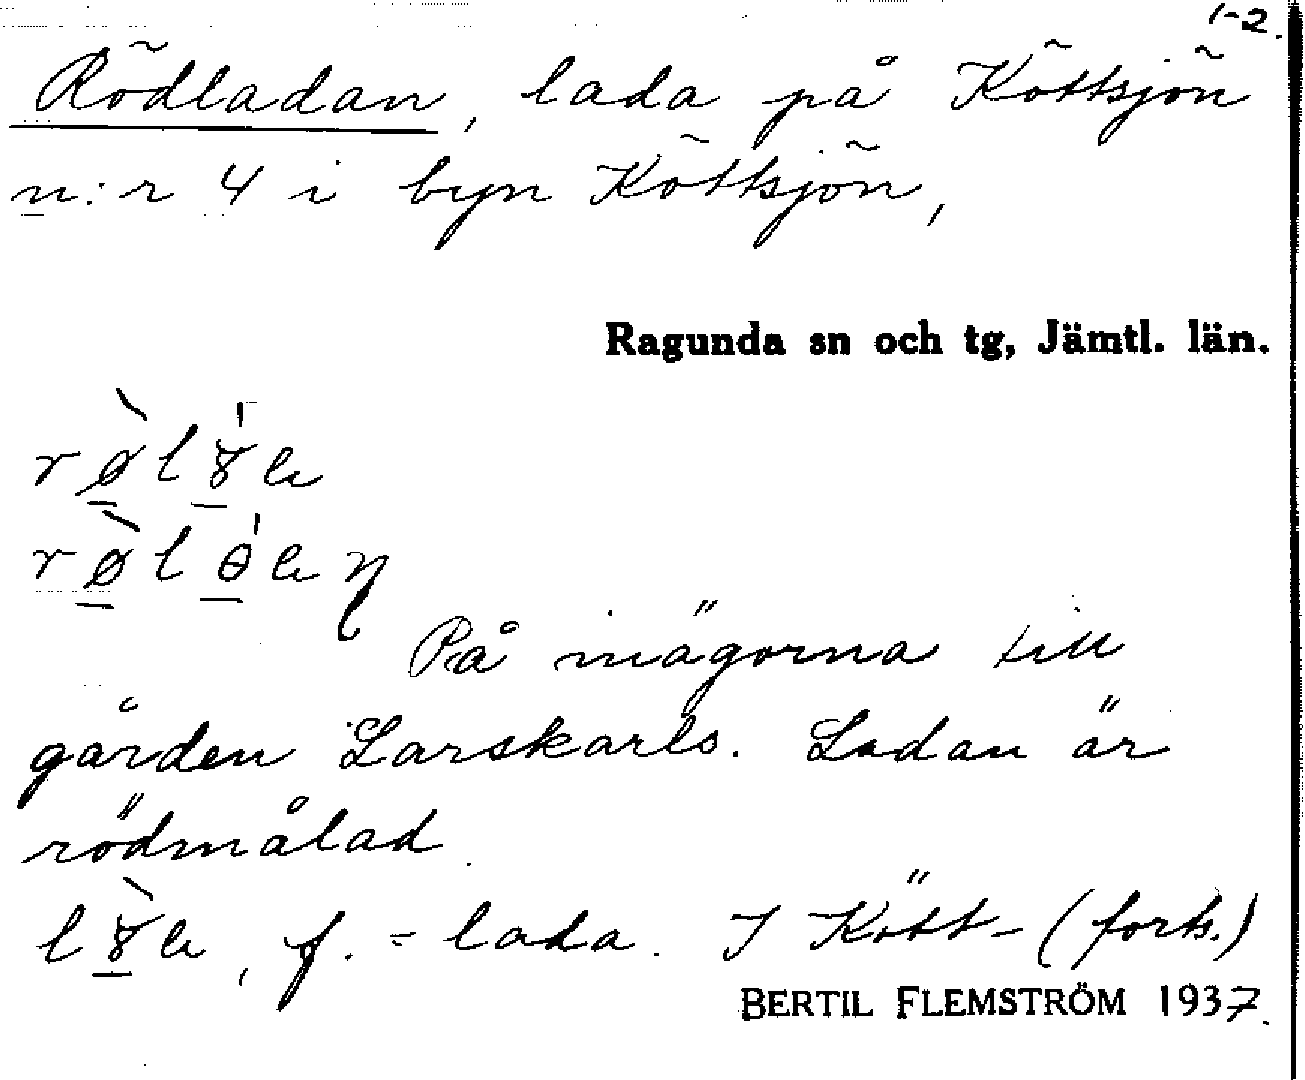 1-2.
Rödladan, lada på Köttsjön
n:r 4 i byn Köttsjön,
Ragunda sn och tg, Jämtl. län.
På inägorna till
gården Larskarls. Ladan är
rödmålad.
f. = lada. I Kött- (forts.)
BERTIL FLEMSTRÖM 1937.